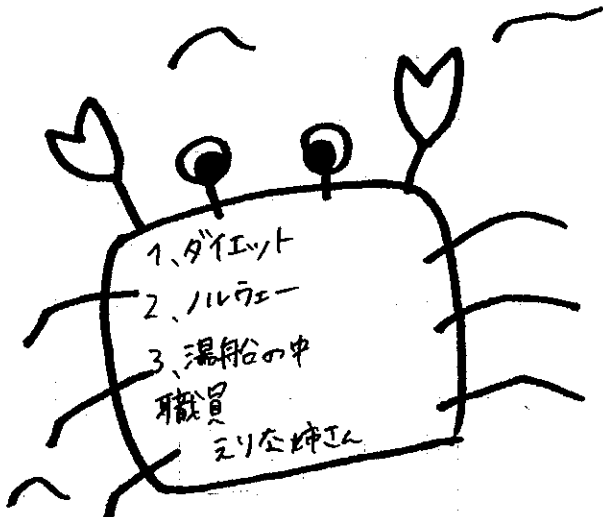 1、ダイエット
2、ノルウェー
3、湯船の中
職員
えりな姉さん